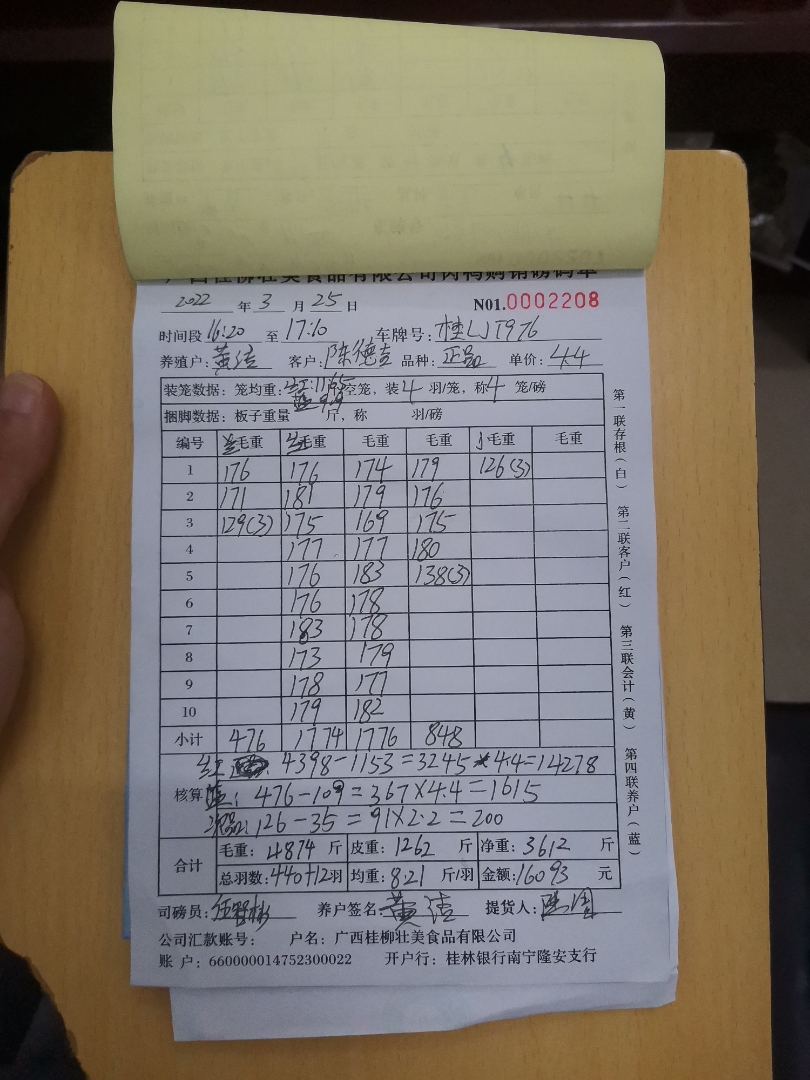 广西桂柳壮美食品有限公司肉鸭购销磅码单
2022 年 3 月 25 日 N01.0002208
时间段 16:20 至 17:10 车牌号: 桂LJT976
养殖户: 黄洁 客户: 陈德吉 品种: 正品 单价: 4.4
装笼数据: 笼均重: 红:11.65 蓝 9.9 斤/空笼, 装 4 羽/笼, 称 4 笼/磅
捆脚数据: 板子重量 斤, 称 羽/磅
编号 蓝毛重 红毛重 毛重 毛重 毛重 毛重
1 176 176 174 179 126(3)
2 171 181 179 176
3 129(3) 175 169 175
4 177 177 180
5 176 183 138(3)
6 176 178
7 183 178
8 173 179
9 178 177
10 179 182
小计 476 1774 1776 848
红 : 4398-1153=3245*4.4=14278
核算 蓝: 476-109=367×4.4=1615
次品: 126-35=91×2.2=200
合计 毛重: 4874 斤 皮重: 1262 斤 净重: 3612 斤
总羽数: 440+12羽 均重: 8.21 斤/羽 金额: 16093 元
司磅员: 养户签名: 黄洁 提货人:
公司汇款账号: 户名: 广西桂柳壮美食品有限公司
账 户: 660000014752300022 开户行: 桂林银行南宁隆安支行
第一联存根(白) 第二联客户(红) 第三联会计(黄) 第四联养户(蓝)